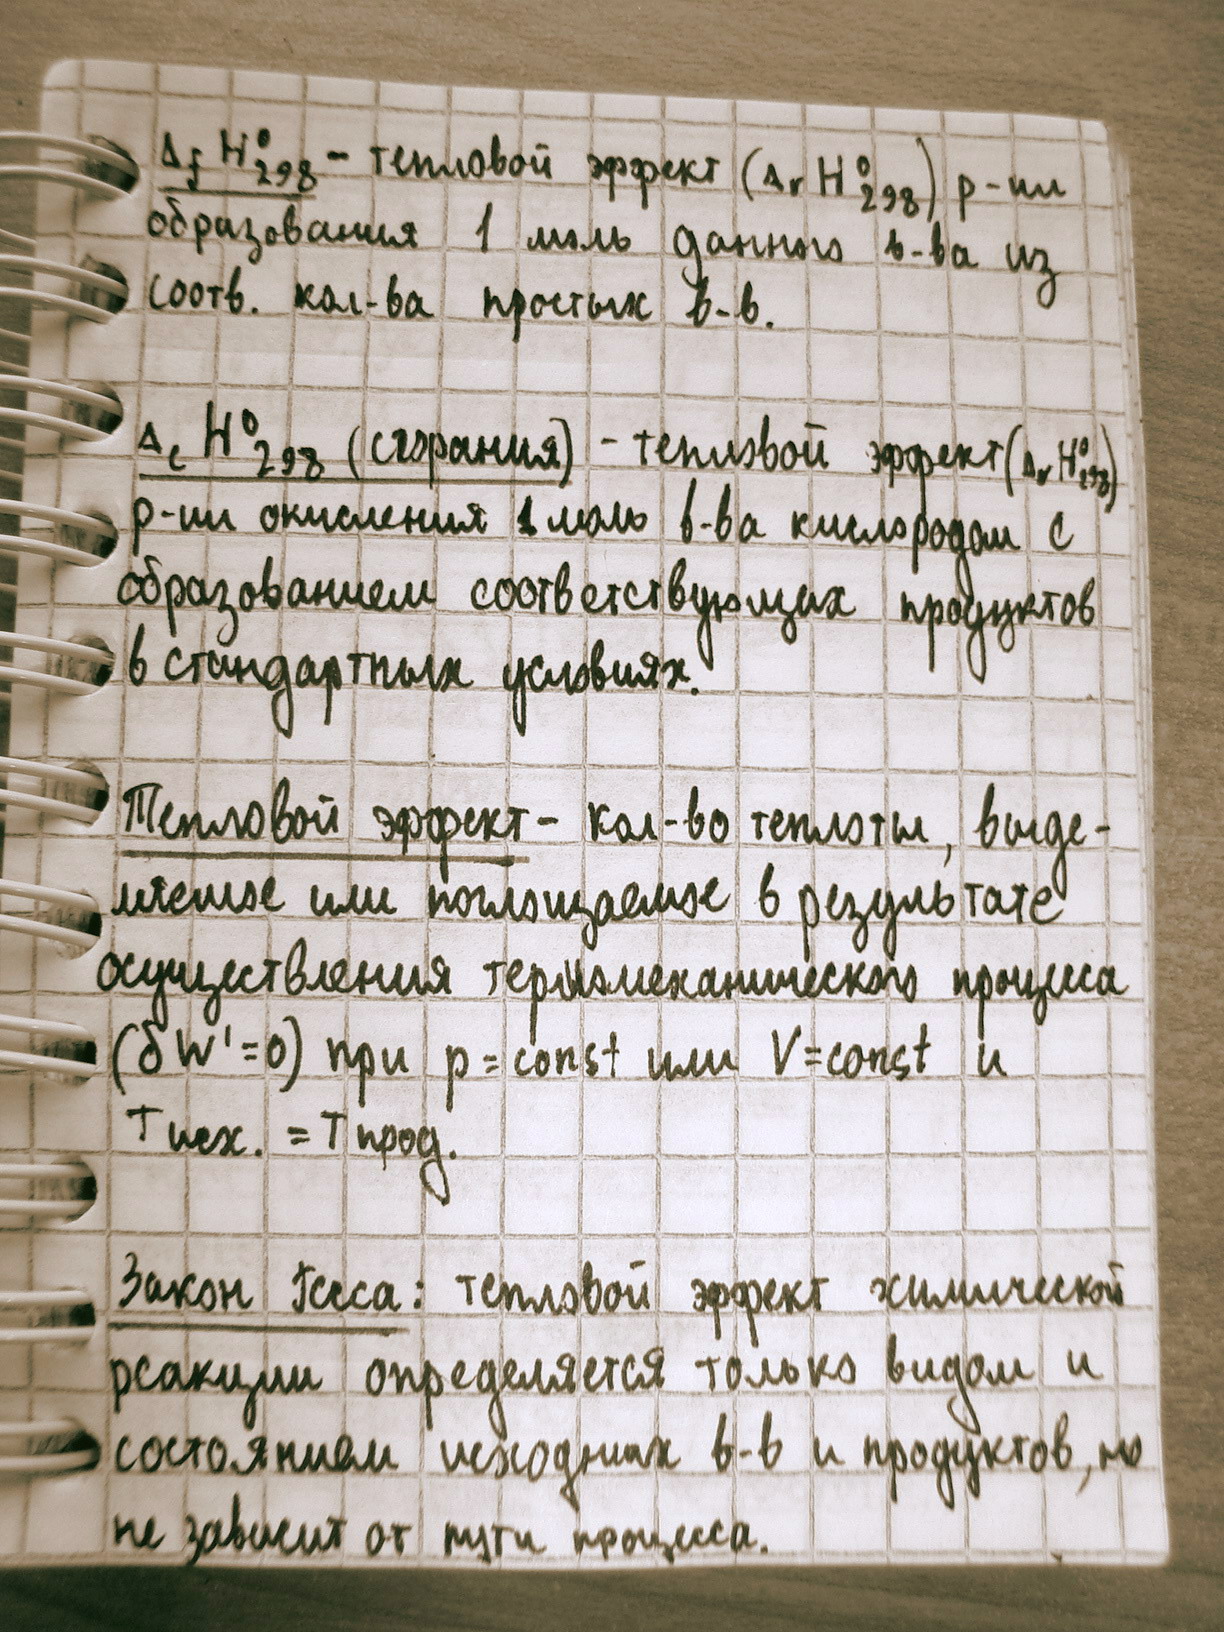 ΔfH⁰₂₉₈ – тепловой эффект (ΔrH⁰₂₉₈) р-ии
образования 1 моль данного в-ва из
соотв. кол-ва простых в-в.
ΔcH⁰₂₉₈ (сгорания) – тепловой эффект (ΔrH⁰₂₉₈)
р-ии окисления 1 моль в-ва кислородом с
образованием соответствующих продуктов
в стандартных условиях.
Тепловой эффект – кол-во теплоты, выде-
ляемое или поглощаемое в результате
осуществления термомеханического процесса
(δW'=0) при p=const или V=const и
Tисх. = Tпрод.
Закон Гесса: тепловой эффект химической
реакции определяется только видом и
состоянием исходных в-в и продуктов, но
не зависит от пути процесса.